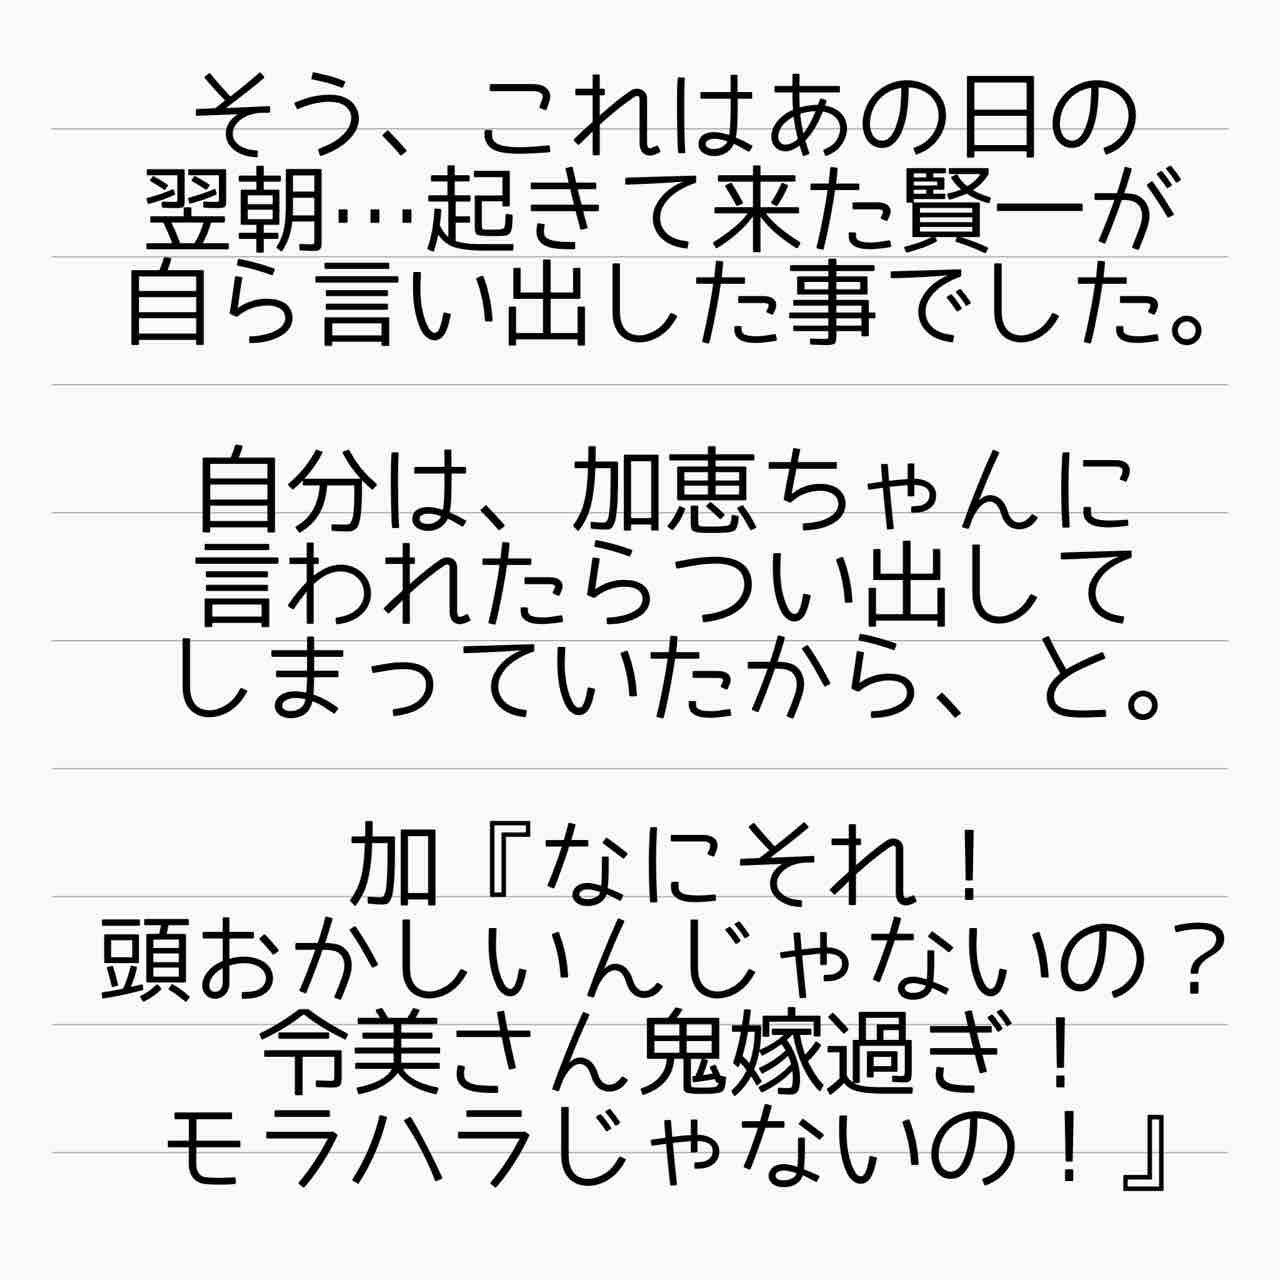 そう、これはあの日の
翌朝…起きて来た賢一が
自ら言い出した事でした。
自分は、加恵ちゃんに
言われたらつい出して
しまっていたから、と。
加『なにそれ！
頭おかしいんじゃないの？
令美さん鬼嫁過ぎ！
モラハラじゃないの！』